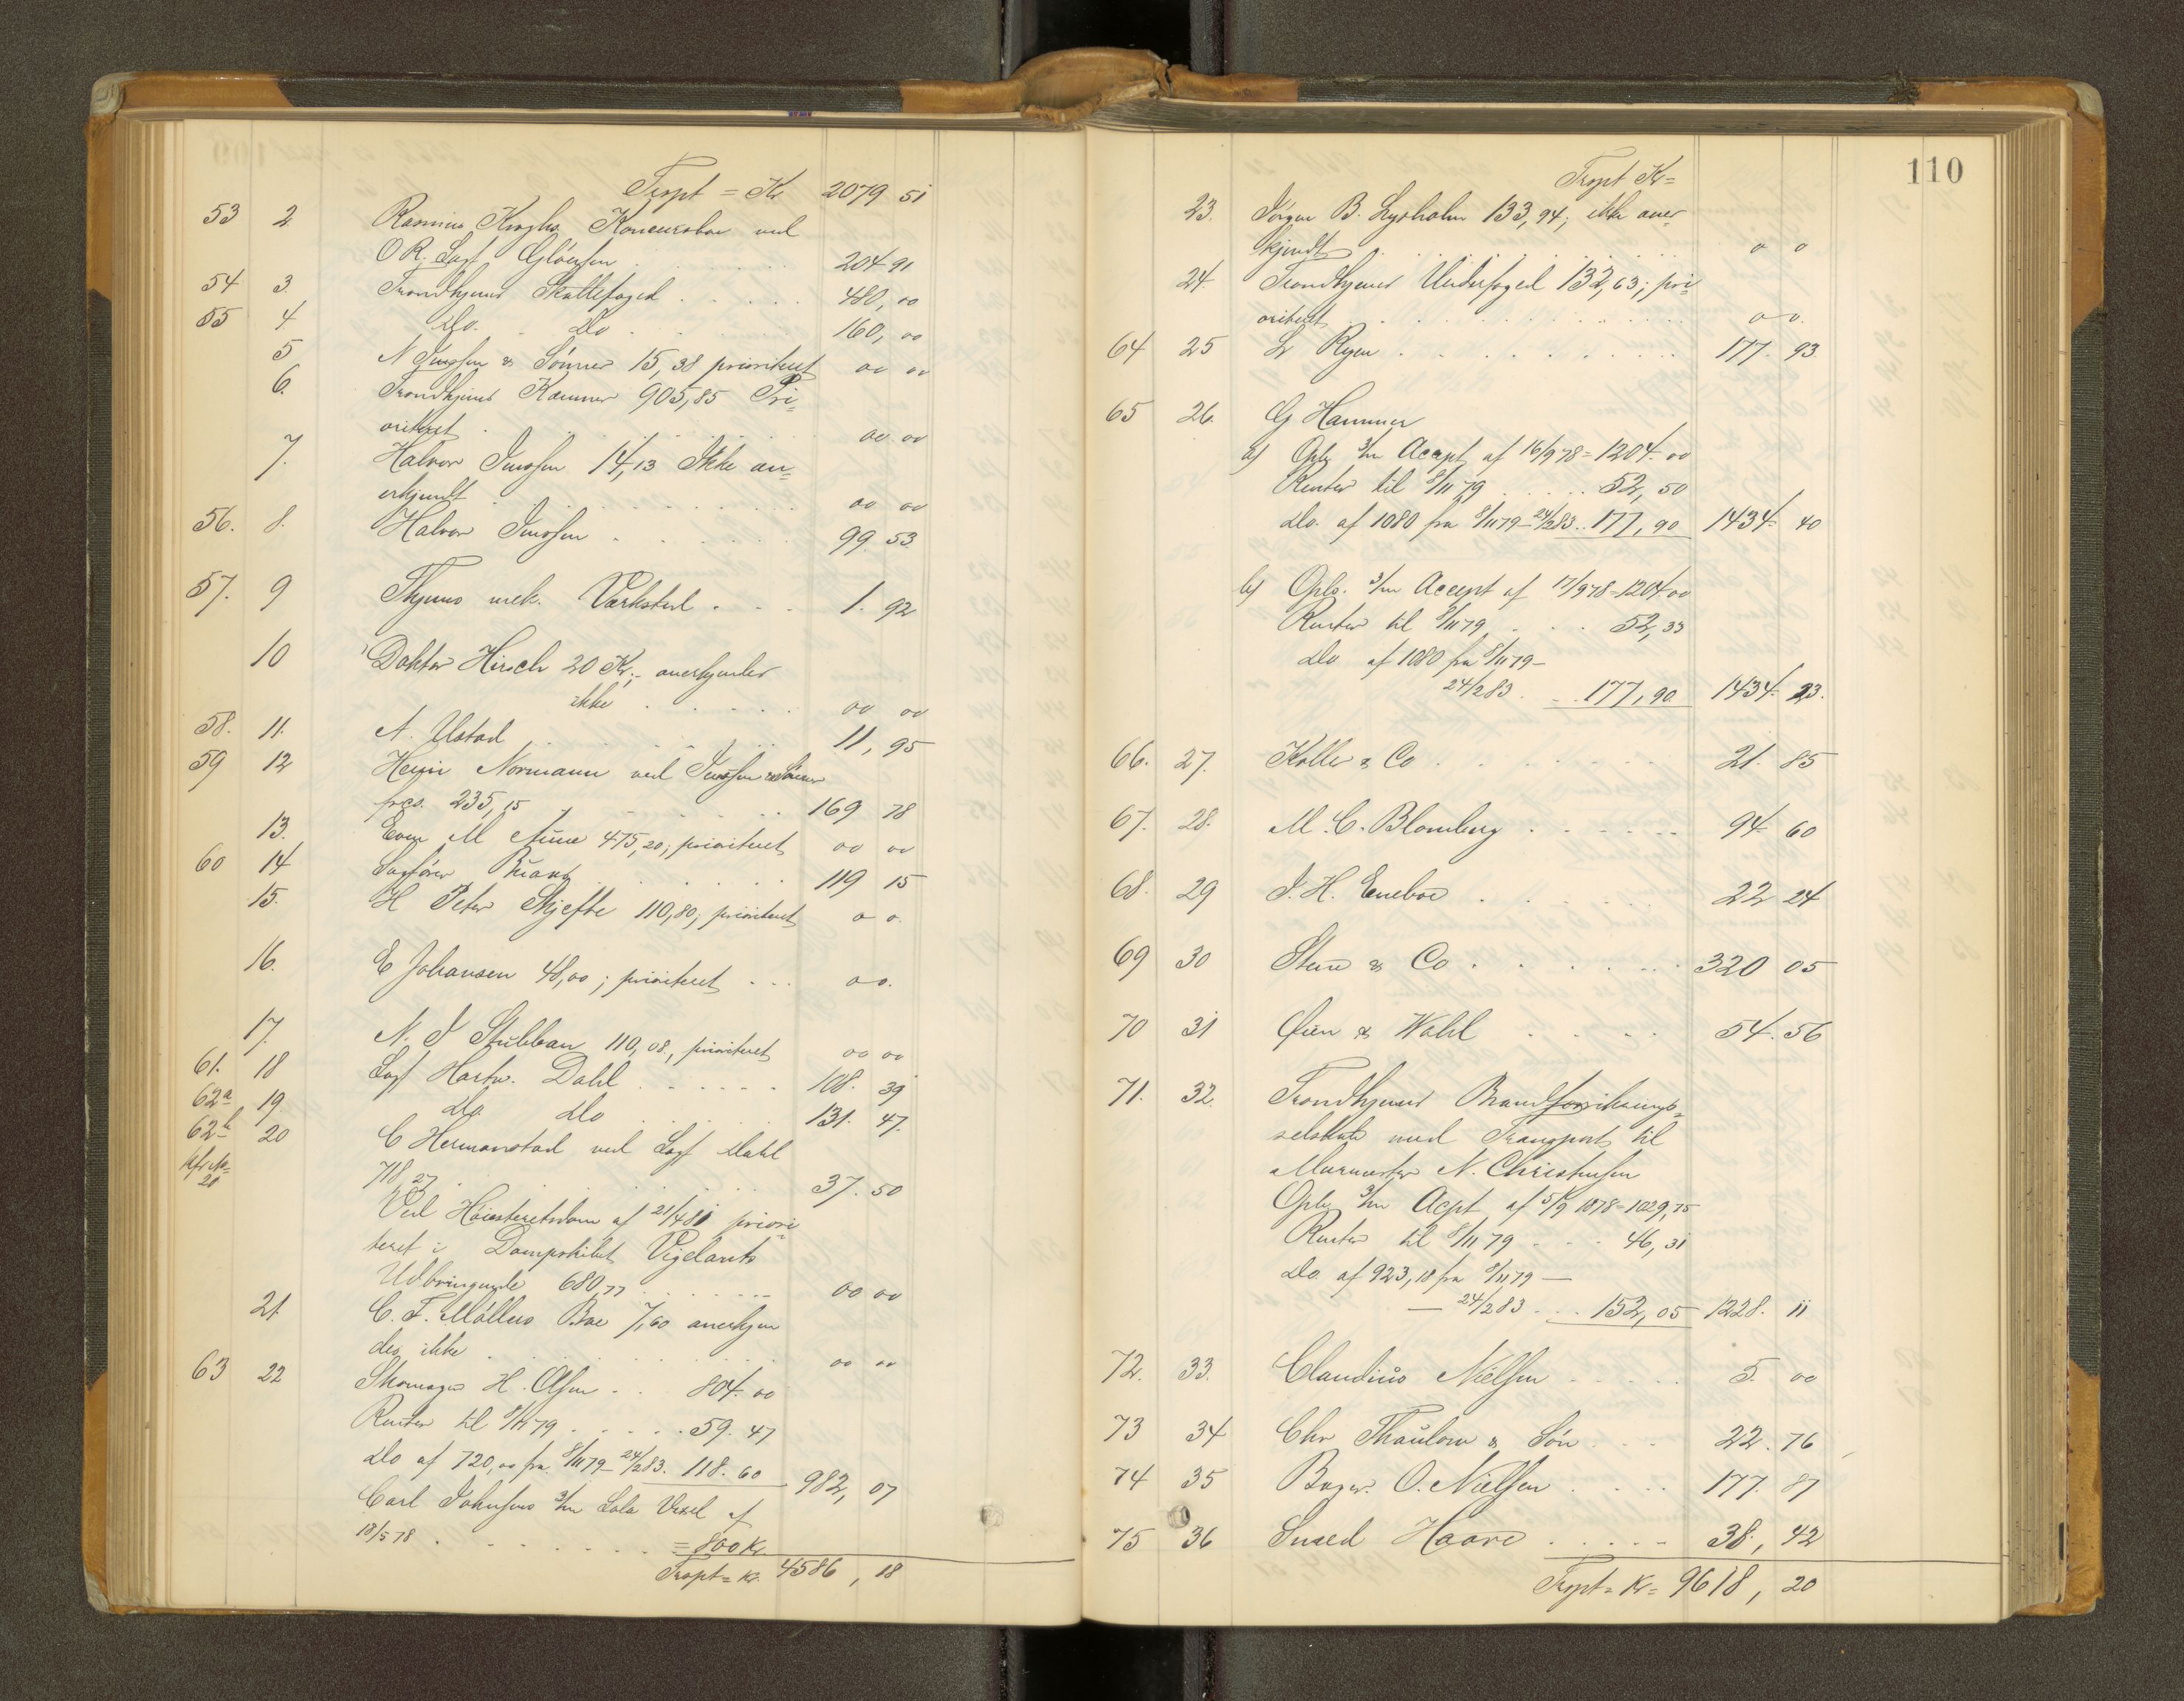 Trspt = Kr 2079 51
53 2. Rasmus Kroghs Koncursbo ved
O.R. Sagf. Glöersen . . . 204 91
54 3. Trondhjems Skattefoged . . . . . 480, 00
55 4 Do. Do . . . 160, 00
5 N Jenssen & Sönner 15,38 prioriteret 00 00
6. Trondhjems Kæmner 905,85 Pri=
oriteret . . . 00 00
7. Halvor Jenssen 14,13 Ikke an=
erkjendt . . . 00 00
56. 8. Halvor Jenssen . . . 99 53
57. 9 Thjems mek. Værksted . . . 1. 92
10 Doktor Hirsch 20 Kr; anerkjendes
ikke . . . 00 00
58. 11. A. Ustad . . . 11, 95
59 12 Heyn Normann ved Jenssen & Sönner
pres. 235,15 . . . 169 78
13. Even M Aune 475,20; prioriteret 00 00
60 14 Sagförer Buaas . . . 119 15
15. H Peter Skjefte 110,80; prioriteret 0 0.
16. E Johansen 48,00; prioriteret . . . 0 0.
17. N. J Stubban 110,08., prioriteret 00 00
61. 18 Sagf Hartv. Dahl . . . . . . 108. 39
62a 19. Do Do . . . 131. 47.
62b 20 C Hermanstad ved Sagf Dahl
718,27 . . . 37. 50
Ved Höiesteretsdom af 21/4 81 priori=
teret i Dampskibet Vigelants
Udbringende 680,77 . . . 00 00
21. C. F. Möllers Bo 7,60 anerkjen
des ikke . . . 00 00
63 22 Skomager H. Olsen . . 804. 00
Renter til 8/11 79 . . . . . 59. 47
Do af 720,00 fra 8/11 79 - 24/2 83. 118. 60 982, 07
Carl Johnsens 3/m Sola Vexel af
18/5 78 . . . = 800 Kr
Trspt = Kr. 4586, 18
110
Trspt Kr =
23. Jörgen B. Lysholm 133,94; ikke aner
kjendt . . . 0 0
24. Trondhjems Underfoged 132,63; pri=
oriteret . . . 0 0.
64 25 L Ryen . . . 177. 93
65 26. G Hammer
a) Opbr 3/m Accept af 16/9 78 = 1204. 00
Renter til 8/11 79 . . . . . 52, 50
Do. af 1080 fra 8/11 79 - 24/2 83. . 177, 90 1434. 40
b) Opbr. 3/m Accept af 17/9 78 = 1204 00
Renter til 8/11 79 . . . 52, 33
Do af 1080 fra 8/11 79 -
24/2 83 . . . 177, 90 1434. 23.
66. 27. Koller & Co . . . 21. 85
67. 28. M. C. Blomberg . . . 94. 60
68. 29 J. H. Eneboe . . . 22 24
69 30 Steen & Co . . . 320 05
70 31 Öien & Wahl . . . 54. 56
71. 32. Trondhjems Brandforsikrings=
selskab med Transport til
Murmester N. Christensen
Opbr 3/m Acpt af 5/9 1878 = 1029,75
Renter til 8/11 79 . . . 46, 31
Do. af 923,18 fra 8/11 79 -
- 24/2 83 . . . 152, 05 1228. 11
72. 33. Claudius Nielsen . . . 5. 00
73 34 Chr Thaulow & Sön . . . 22. 76
74 35 Bager O. Nielsen . . . 177. 87
75 36 Smed Haave . . . 38, 42
Trspt = Kr = 9618, 20